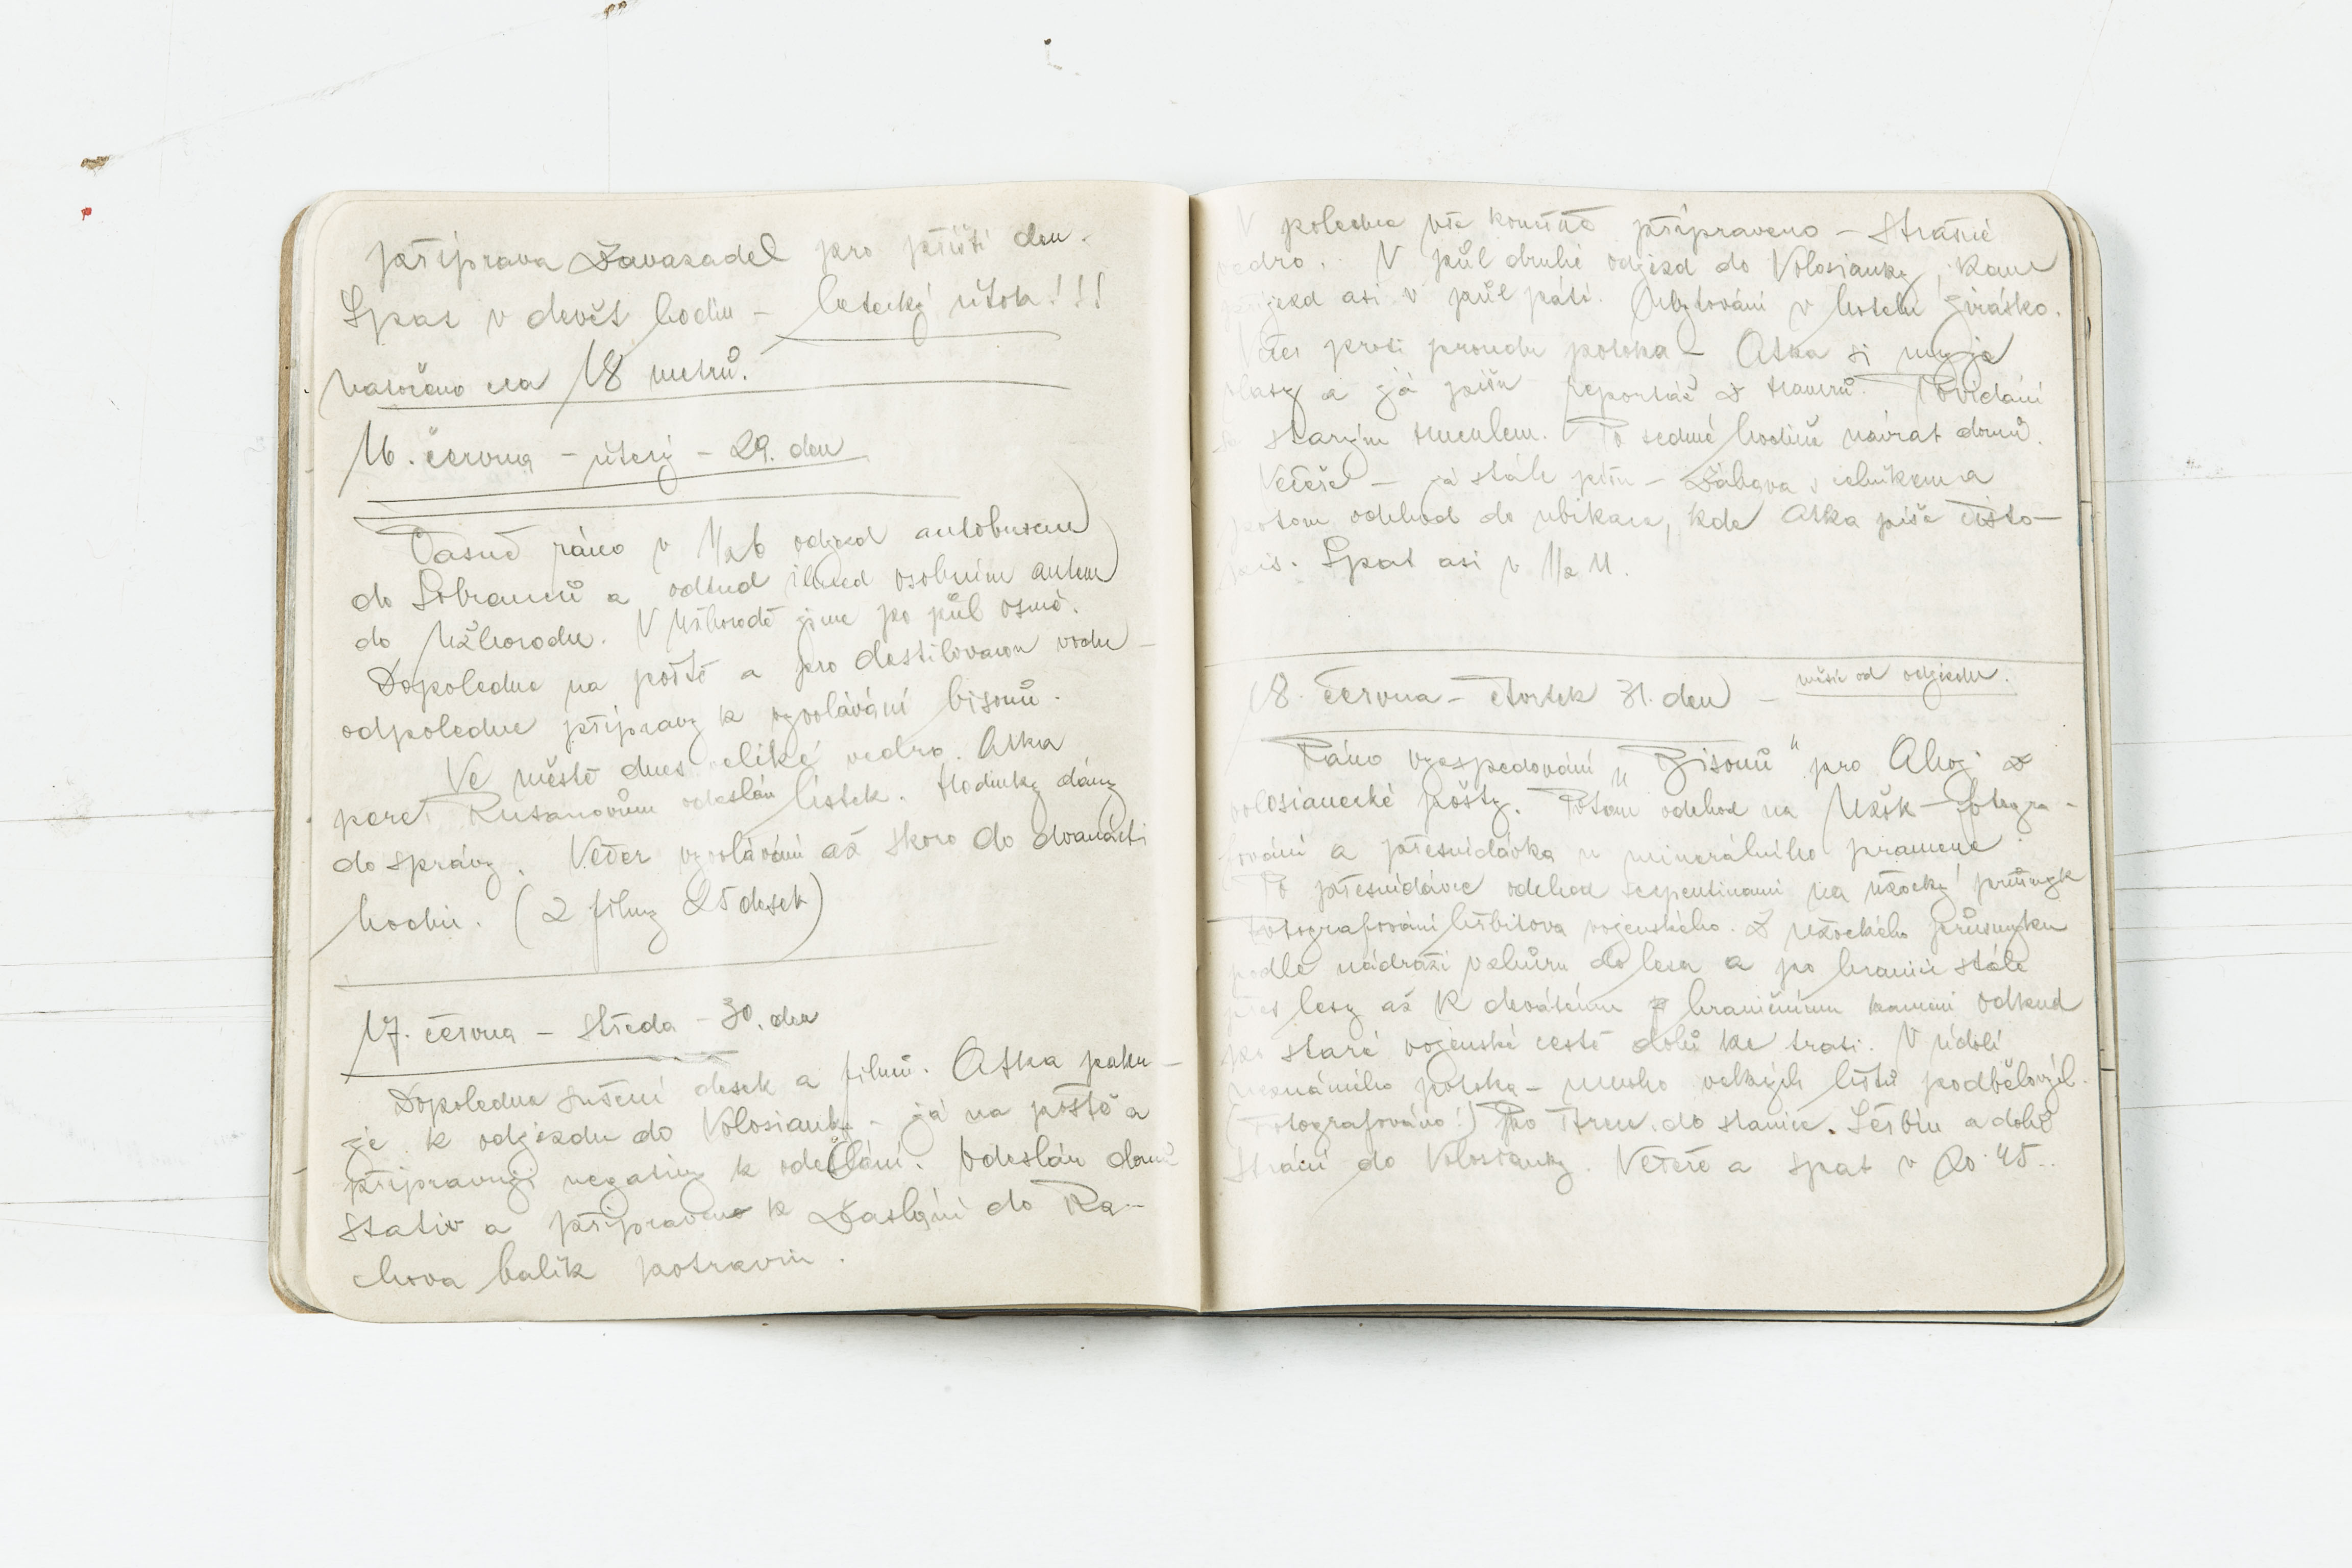 příprava zavazadel pro příští den.
Spat v devět hodin – letecký útok!!!
natočeno cca 18 metrů.
16. června – úterý – 29. den
Časně ráno v 1/2 6 odjezd autobusem
do Sobranců a odtud ihned osobním autem
do Užhorodu. V Užhorodě jsme po půl osmé.
Dopoledne na poště a pro destilovanou vodu –
odpoledne přípravy k vyvolávání bisonů.
Ve městě dnes veliké vedro. Atka
pere. Rusanovům odeslán lístek. Hodinky dány
do správy. Večer vyvolávání až skoro do dvanácti
hodin. (2 filmy 25 desek)
17. června – středa – 30. den
Dopoledne sušení desek a filmů. Atka paku–
je k odjezdu do Volosianky – já na poště a
připravuji negativy k odeslání. Odeslán domů
stativ a připraveno k zaslání do Ra–
chova balík potravin.
V poledne vše konečně připraveno – strašné
vedro. V půl druhé odjezd do Volosianky, kam
příjezd asi v půl páté. Ubytování v hotelu Zvirásko.
Večer proti proudu potoka – Atka si myje
vlasy a já píšu reportáž z tramrů. Povídání
se starým tmenlem. Po sedmé hodině návrat domů.
Večeře – já stále píšu – zábava s celníkem a
potom odchod do ubikace, kde Atka píše čisto–
pis. Spat asi v 1/2 11.
18. června – čtvrtek 31. den – měsíc od odjezdu.
Ráno vyexpedování „Bisonů" pro Ahoj z
volosianecké pošty. Potom odchod na Užok – fotogra–
fování a přesnídávka u minerálního pramene.
Po přesnídávce odchod serpentinami na užocký průsmyk
Fotografování hřbitova vojenského. Z užockého průsmyku
podle nádraží vzhůru do lesa a po hranici stále
přes lesy až k devátému hraničnímu kameni odkud
po staré vojenské cestě dolů ke trati. V údolí
neznámého potoka – mnoho velkých listů podbělových.
(Fotografováno!) Po trati do stanice Ščerbin a dolů
strání do Volosianky. Večeře a spat v 20.45..